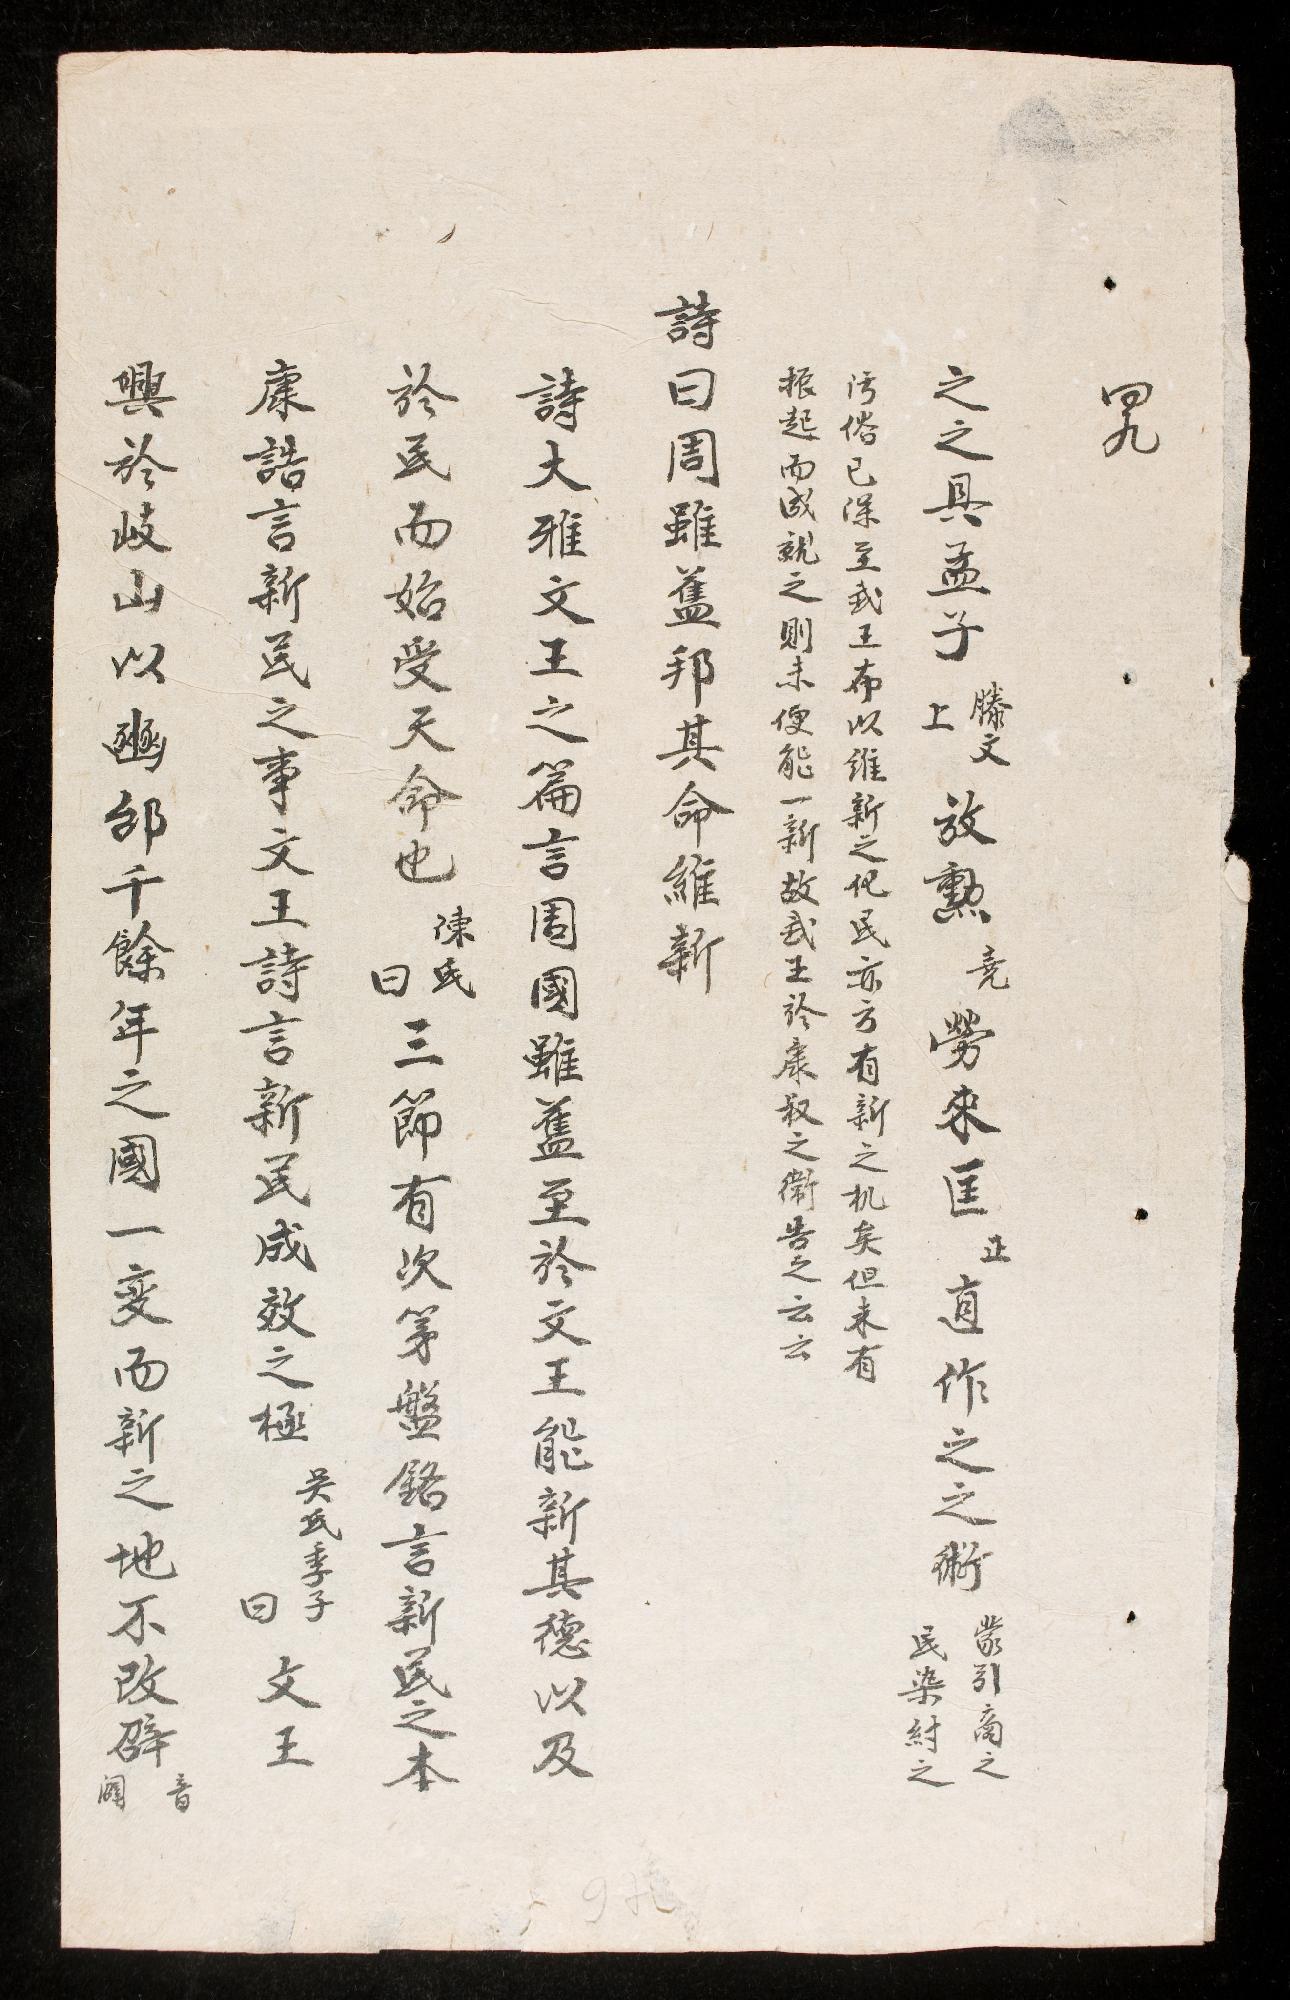 四九
之之具孟子滕文上放勲堯勞來匡正直作之之術蒙引商之民染紂之
污俗已深至武王布以維新之化民亦方有新之机矣但未有
振起而成就之則未便能一新故武王於康叔之衛告之云云
詩曰周雖舊邦其命維新
詩大雅文王之篇言周國雖舊至於文王能新其德以及
於民而始受天命也陳氏曰三節有次第盤銘言新民之本
康誥言新民之事文王詩言新民成效之極吴氏季子曰文王
興於岐山以豳邰千餘年之國一変而新之地不改辟音闢